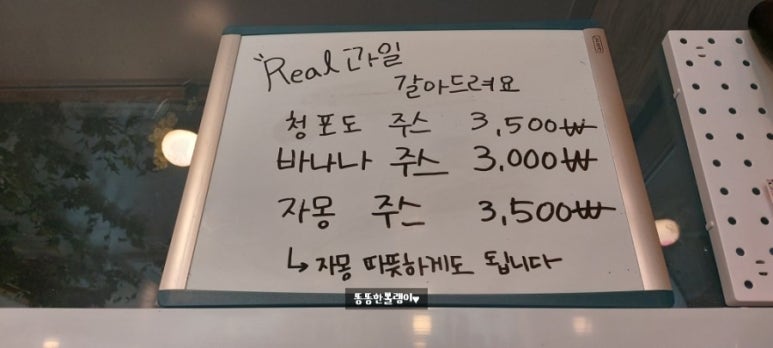 "Real 과일
갈아드려요
청포도 주스 3,500₩
바나나 주스 3.000₩
자몽 주스 3,500₩
↳ 자몽 따뜻하게도 됩니다
똥똥한볼랭이♥